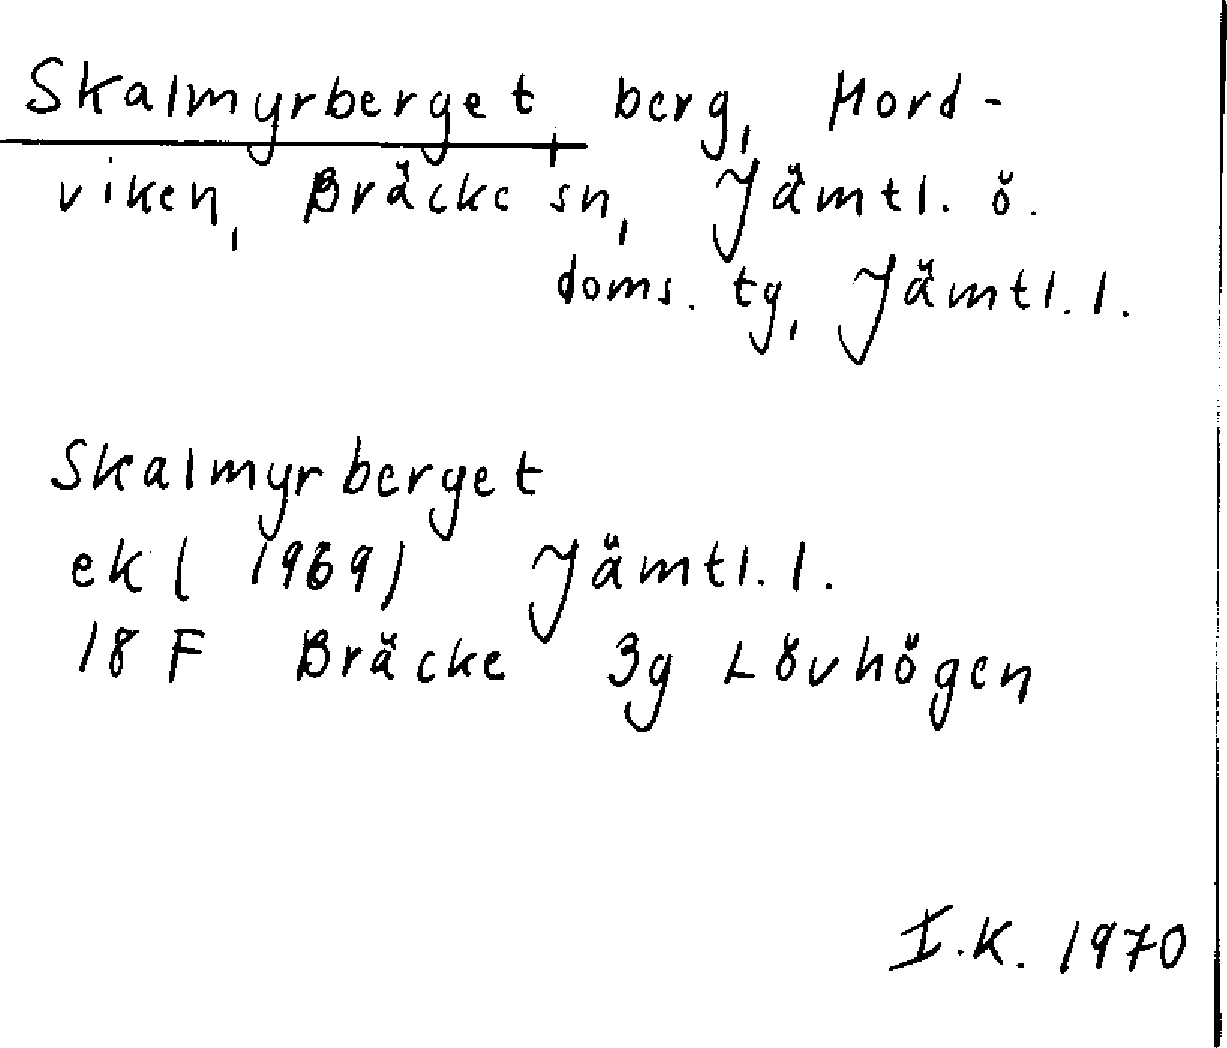 Skalmyrberget, berg, Mord-
viken, Bräcke sn, Jämtl. ö.
doms. tg, Jämtl. l.
Skalmyrberget
ek ( 1969) Jämtl. l.
18 F Bräcke 3g Lövhögen
I.K. 1970